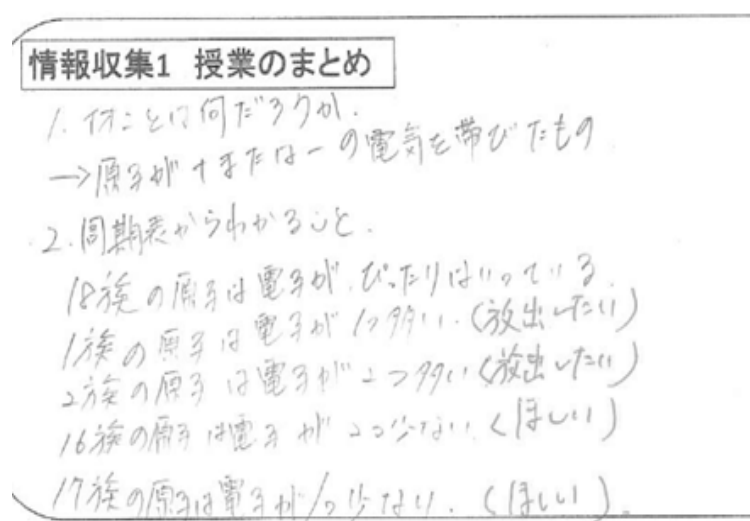 情報収集1 授業のまとめ
1. イオンとは何だろうか.
→原子が+または-の電気を帯びたもの
2. 周期表からわかること.
18族の原子は電子が、ぴったりはいっている.
1族の原子は電子が1つ多い.(放出したい)
2族の原子は電子が2つ多い(放出したい)
16族の原子は電子が2つ少ない.(ほしい)
17族の原子は電子が1つ少ない.(ほしい).